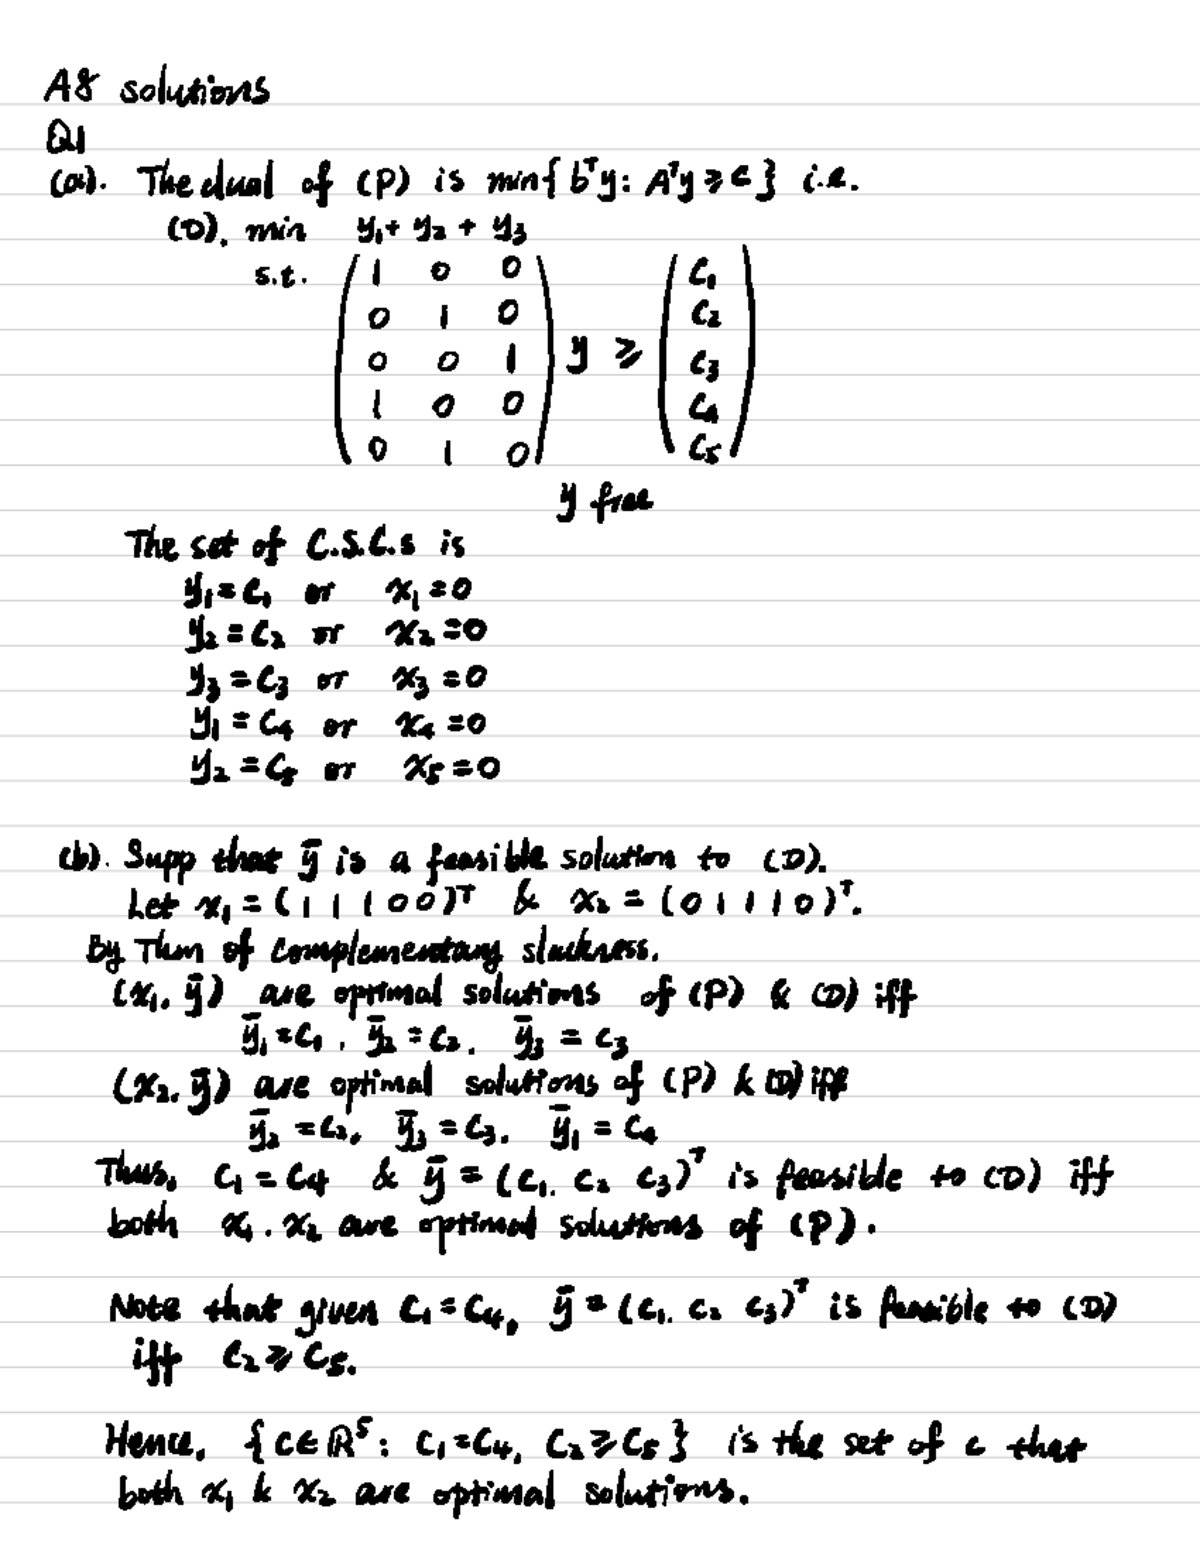 A8 solutions
Q1
(a). The dual of (P) is min{ bᵀy: Aᵀy ≥ c } i.e.
(D). min y₁ + y₂ + y₃
s.t. ( 1 0 0 ) ( c₁ )
0 1 0 c₂
0 0 1 y ≥ c₃
1 0 0 c₄
0 1 0 c₅
y free
The set of C.S.C.s is
y₁ = c₁ or x₁ = 0
y₂ = c₂ or x₂ = 0
y₃ = c₃ or x₃ = 0
y₁ = c₄ or x₄ = 0
y₂ = c₅ or x₅ = 0
(b). Supp that ȳ is a feasible solution to (D).
Let x₁ = (1 1 1 0 0)ᵀ & x₂ = (0 1 1 1 0)ᵀ.
By Thm of complementary slackness.
(x₁, ȳ) are optimal solutions of (P) & (D) iff
ȳ₁ = c₁, ȳ₂ = c₂, ȳ₃ = c₃
(x₂, ȳ) are optimal solutions of (P) & (D) iff
ȳ₂ = c₂, ȳ₃ = c₃, ȳ₁ = c₄
Thus, c₁ = c₄ & ȳ = (c₁, c₂ c₃)ᵀ is feasible to (D) iff
both x₁, x₂ are optimal solutions of (P).
Note that given c₁ = c₄, ȳ = (c₁, c₂ c₃)ᵀ is feasible to (D)
iff c₂ ≥ c₅.
Hence, {c ∈ ℝ⁵: c₁ = c₄, c₂ ≥ c₅} is the set of c that
both x₁ & x₂ are optimal solutions.